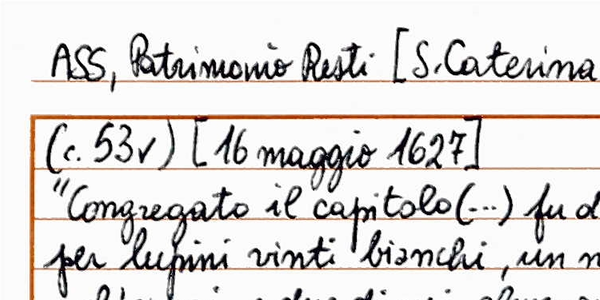 ASS, Patrimonio Resti [S. Caterina
(c. 53v) [16 maggio 1627]
"Congregato il capitolo (...) fu d
per lupini vinti bianchi, un n